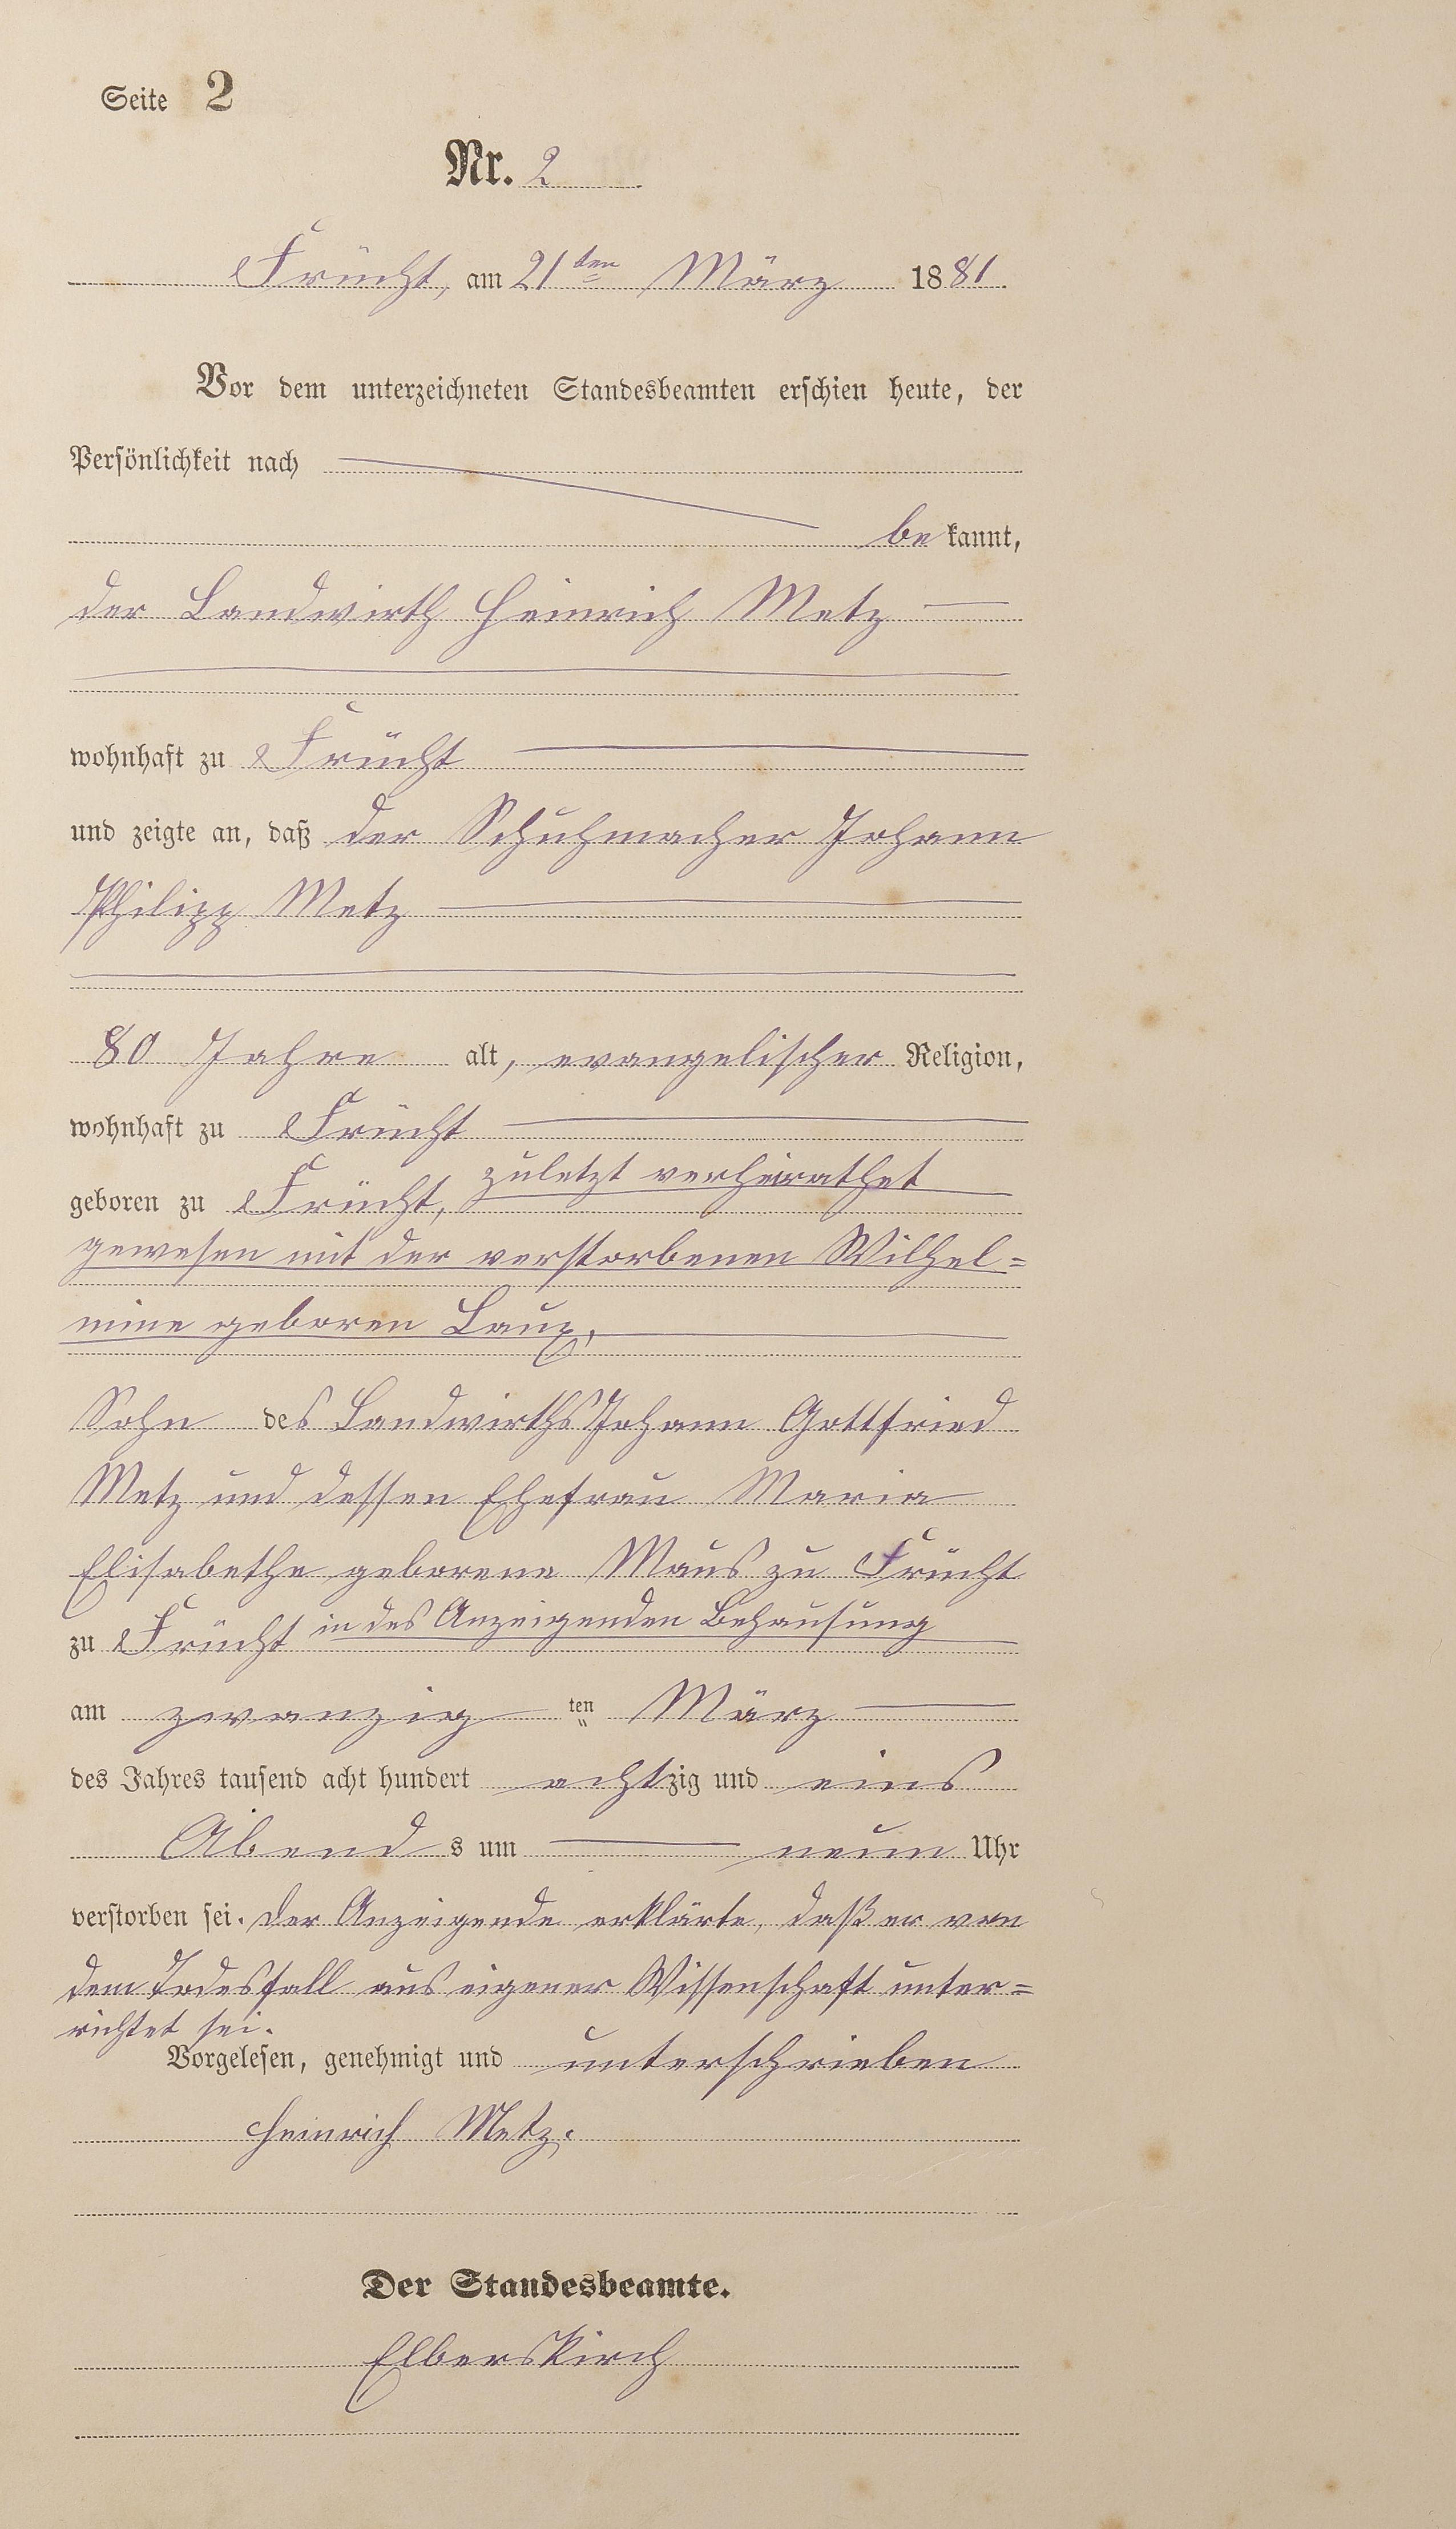 Seite 2
Nr. 2
Frücht, am 21ten März 1881.
Vor dem unterzeichneten Standesbeamten erschien heute, der
Persönlichkeit nach
bekannt,
der Landwirth Heinrich Metz
wohnhaft zu Frücht
und zeigte an, daß der Schuhmacher Johann
Philipp Metz
80 Jahre alt, evangelischer Religion,
wohnhaft zu Frücht
geboren zu Frücht, zuletzt verheirathet
gewesen mit der verstorbenen Wilhel=
mine geboren Laux,
Sohn des Landwirths Johann Gottfried
Metz und dessen Ehefrau Maria
Elisabethe geborene Maus zu Frücht
zu Frücht in des Anzeigenden Behausung
am zwanzigten März
des Jahres tausend acht hundert achtzig und eins
Abends um neun Uhr
verstorben sei. Der Anzeigende erklärte, daß er von
dem Todesfall aus eigener Wissenschaft unter=
richtet sei.
Vorgelesen, genehmigt und unterschrieben
Heinrich Metz.
Der Standesbeamte.
Elberskirch